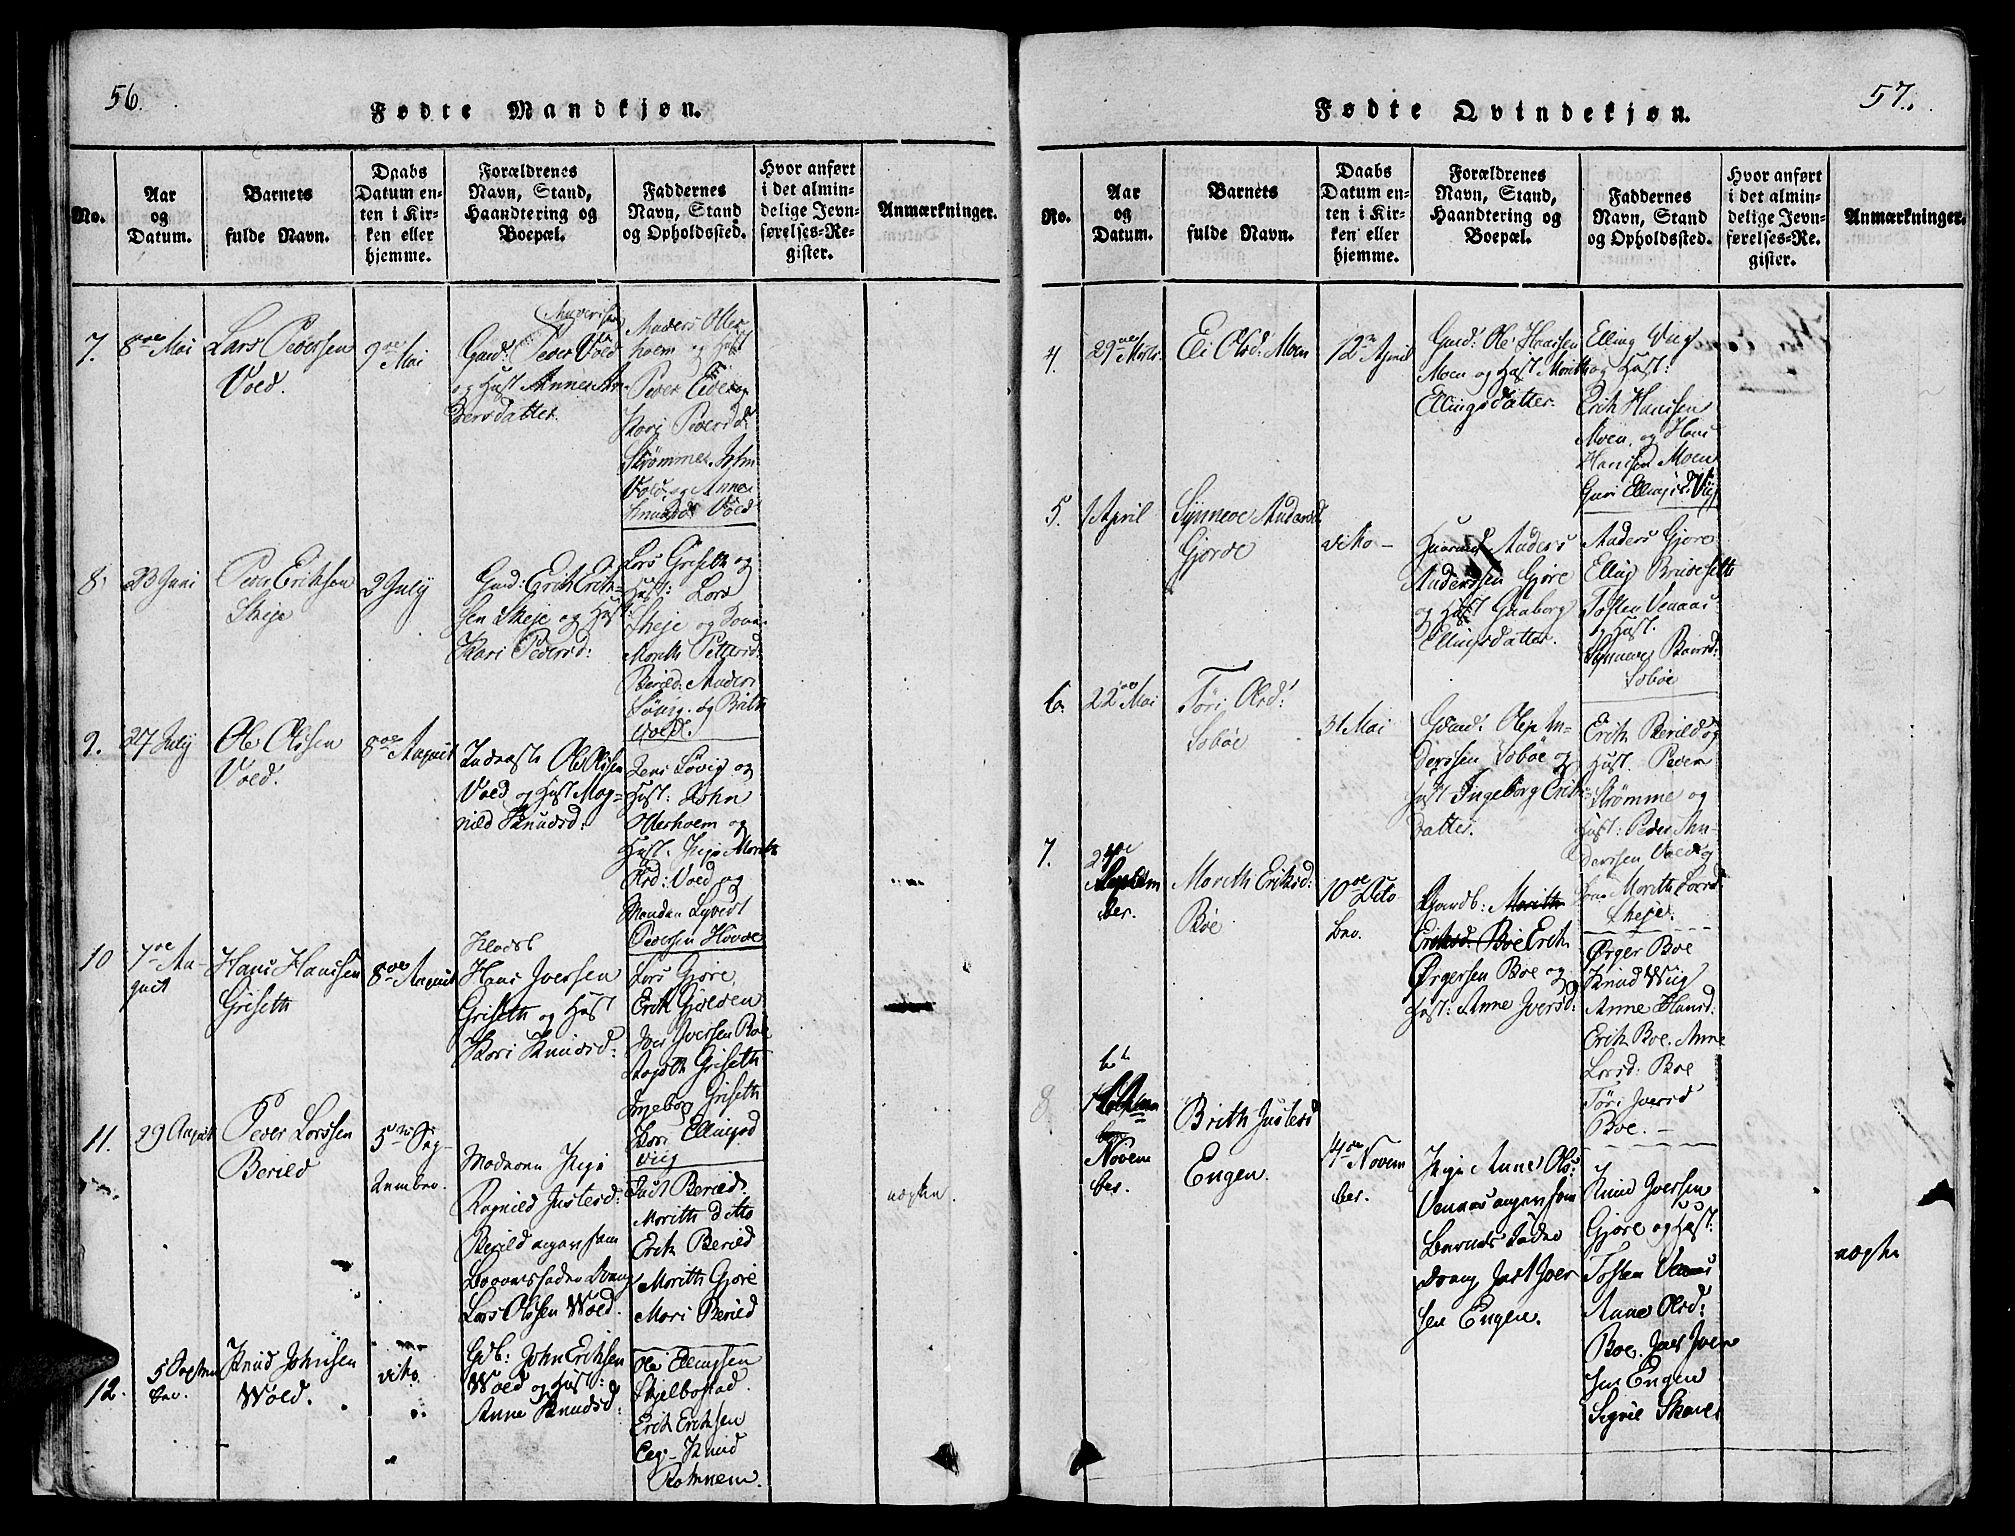 56.
Fødte Mandkjøn.
No.
Aar
og
Datum.
Barnets
fulde Navn.
Daabs
Datum en-
ten i Kir-
ken eller
hjemme.
Forældrenes
Navn, Stand,
Haandtering og
Boepæl.
Faddernes
Navn, Stand
og Opholdssted.
Hvor anført
i det almin-
delige Jevn-
førelses-Re-
gister.
Anmærkninger.
7.
8de Mai
Lars Pedersen
Vold.
9de
Mai
Gaard: Peder Vold
og Hust Anne An-
dersdatter.
Anders Otter-
hoem og Hust
Peder Eide og
Kari Pedersd:
Strømme. John
Vold og Anne
Knudsd Vold
8.
23 Juni
Peder Eriksen
Skeje
2 July
Gaard: Erik Erik-
sen Skeje og Hust
Kari Pedersd:
Lars Griseth og
Hust: Lars
Skeje og Kone
Marith Pettersd:
Berild: Anders
Løvig. og Brith
Vold.
9.
27 July
Ole Olssen
Vold.
8de August
Inderst: Ole Olssen
Vold og Hust Mag-
nild Knudsd:
Jens Løvig og
Hust: John
Otterhoem og
Hust. Pige Marith
Olsd: Vold og
Pedersen Hovde
10
7de Au-
gust
Hans Hanssen
Griseth
8de August
Hans Iversen
Griseth og Hust
Kari Knudsd:
Lars Gjøre,
Erik Gjelden
Iver Iversen Boe
Griseth
Ingebor Griseth
Kari Ellingsd
Viig
11.
29 August
Peder Larssen
Berild
5te Sep-
tember.
Moderen Pige
Ragnild Justesd:
Berild angav som
Barnefader Dreng
Lars Olssen Wold.
Just Berild,
Marith ditto
Erik Berild
Marith Gjøre
Mari Berild
uægte.
12.
5 Septem
ber.
Knud Johnsen
Wold.
dito
Gdb: John Eriksen
Wold og Hust:
Anne Knudsd:
Ole Ellingsen
Skjelbostad.
Erik Eriksen
Eeg. Knud
57.
Fødte Qvindekjøn.
No.
Aar
og
Datum.
Barnets
fulde Navn.
Daabs
Datum en-
ten i Kir-
ken eller
hjemme.
Forældrenes
Navn, Stand,
Haandtering og
Boepæl.
Faddernes
Navn, Stand
og Opholdssted.
Hvor anført
i det almin-
delige Jevn-
førelses-Re-
gister.
Anmærkninger.
4.
29de Marts
Eli Olsd: Moen
12te April
Gaard: Ole Hansen
Moen og Hust Marith
Ellingsdatter.
Elling Viig
og Hust:
Erik Hanssen
Moen, og Hans
Hanssen Moen
Guri Ellingsd: Viig
5.
1 April
Synneve Andersd:
Gjøre
dito
Anders
Anderssen Gjøre
og Hust Gunborg
Ellingsdatter.
Anders Gjøre
Elling Brudeseth
Tosten Venaas
og Hust.
Synneve
Sobøe
6.
22de Mai
Tøri Olsd:
Sobøe
31 Mai
Gaard: Ole An-
derssen Sobøe og
Hust Ingeborg Eriks-
datter.
Erik Berild og
Hust. Peder
Strømme og
Hust: Peder An-
derssen Vold og
Marith Larsd:
Skeje.
7.
24de
Septem
ber.
Marith Eriksd:
Boe
10de Octo
ber.
Gaardb: Marith
Eriksd: Boe Erik
Ørgersen Boe og
Hust: Anne Iversd:
Ørger Boe
Knud Wiig
Anne Hansd:
Erik Boe. Anne
Larsd: Boe
Tøri Iversd
Boe.
8
Novem
ber.
Brith Justesd
Engen.
14de Novem
ber.
Pige Anne Ols:
Venaas angav som
Barnets Fader
Dreng Just Iver
sen Engen.
Knud Iversen
Gjøre og Hust:
Tosten Venaas
Anne Olsd:
Boe. Iver
sen Engen
uægte